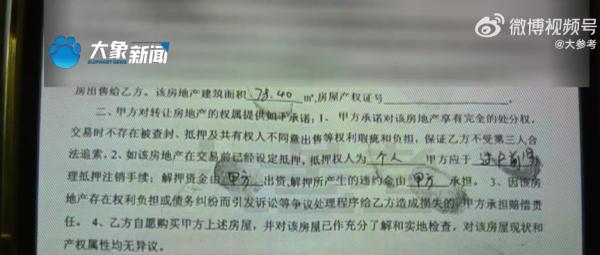 微博视频号
@大参考
大象新闻
ELEPHANT NEWS
房出售给乙方。该房地产建筑面积 78.40 ㎡,房屋产权证号
二、甲方对转让房地产的权属提供如下承诺:1、甲方承诺对该房地产享有完全的处分权,
交易时不存在被查封、抵押及共有权人不同意出售等权利瑕疵和负担,保证乙方不受第三人合
法追索,2、如该房地产在交易前已经设定抵押,抵押权人为 个人 甲方应于 过户前
理抵押注销手续;解押资金由 甲方 出资,解押所产生的违约金由 甲方 承担。3、因该房
地产存在权利负担或债务纠纷而引发诉讼等争议处理程序给乙方造成损失的,甲方承担赔偿责
任。4、乙方自愿购买甲方上述房屋,并对该房屋已作充分了解和实地检查,对该房屋现状和
产权属性均无异议。